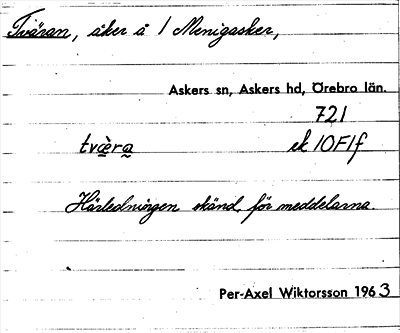 Tväran, åker å 1 Menigasker,
Askers sn, Askers hd, Örebro län.
721
tvæ̀ra ek 10F1f
Härledningen okänd för meddelarna
Per-Axel Wiktorsson 1963